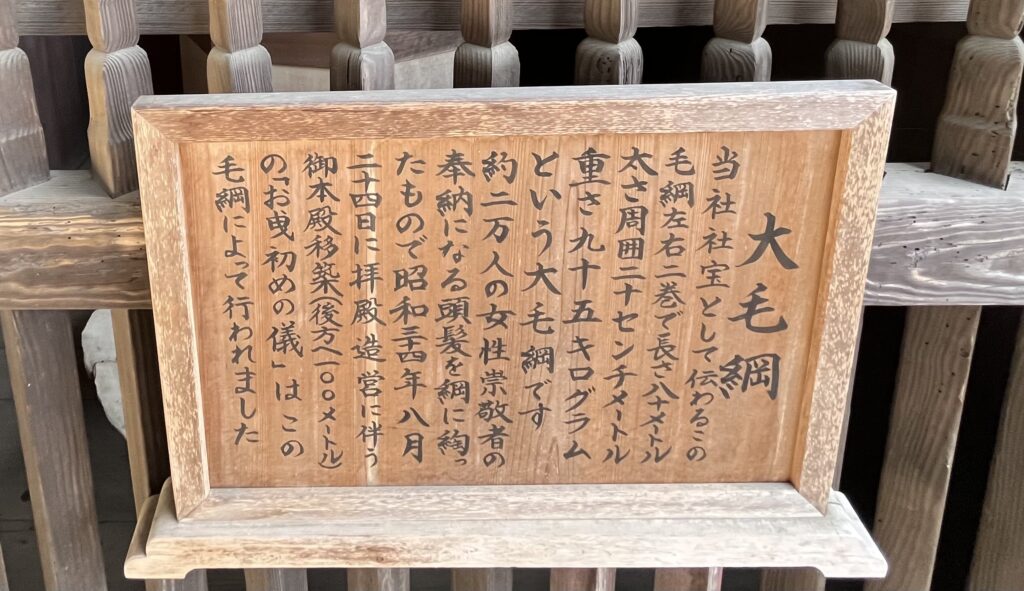 大毛綱
当社社宝として伝わるこの
毛綱左右二巻で長さ八十メートル
太さ周囲二十センチメートル
重さ九十五キログラム
という大毛綱です
約二万人の女性崇敬者の
奉納になる頭髪を綱に綯っ
たもので昭和三十四年八月
二十四日に拝殿造営に伴う
御本殿移築(後方へ一〇〇メートル)
の「お曳初めの儀」はこの
毛綱によって行われました